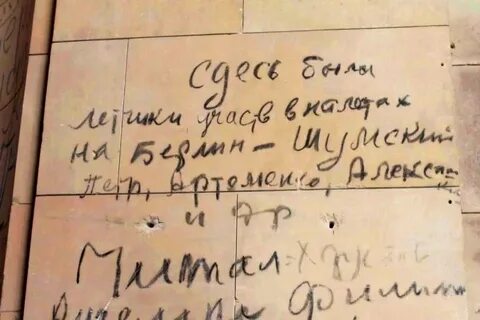 сдесь были
летчики участв в налетах
на Берлин – Шумский
Петр, Артеменко, Алексан
и др
Читал